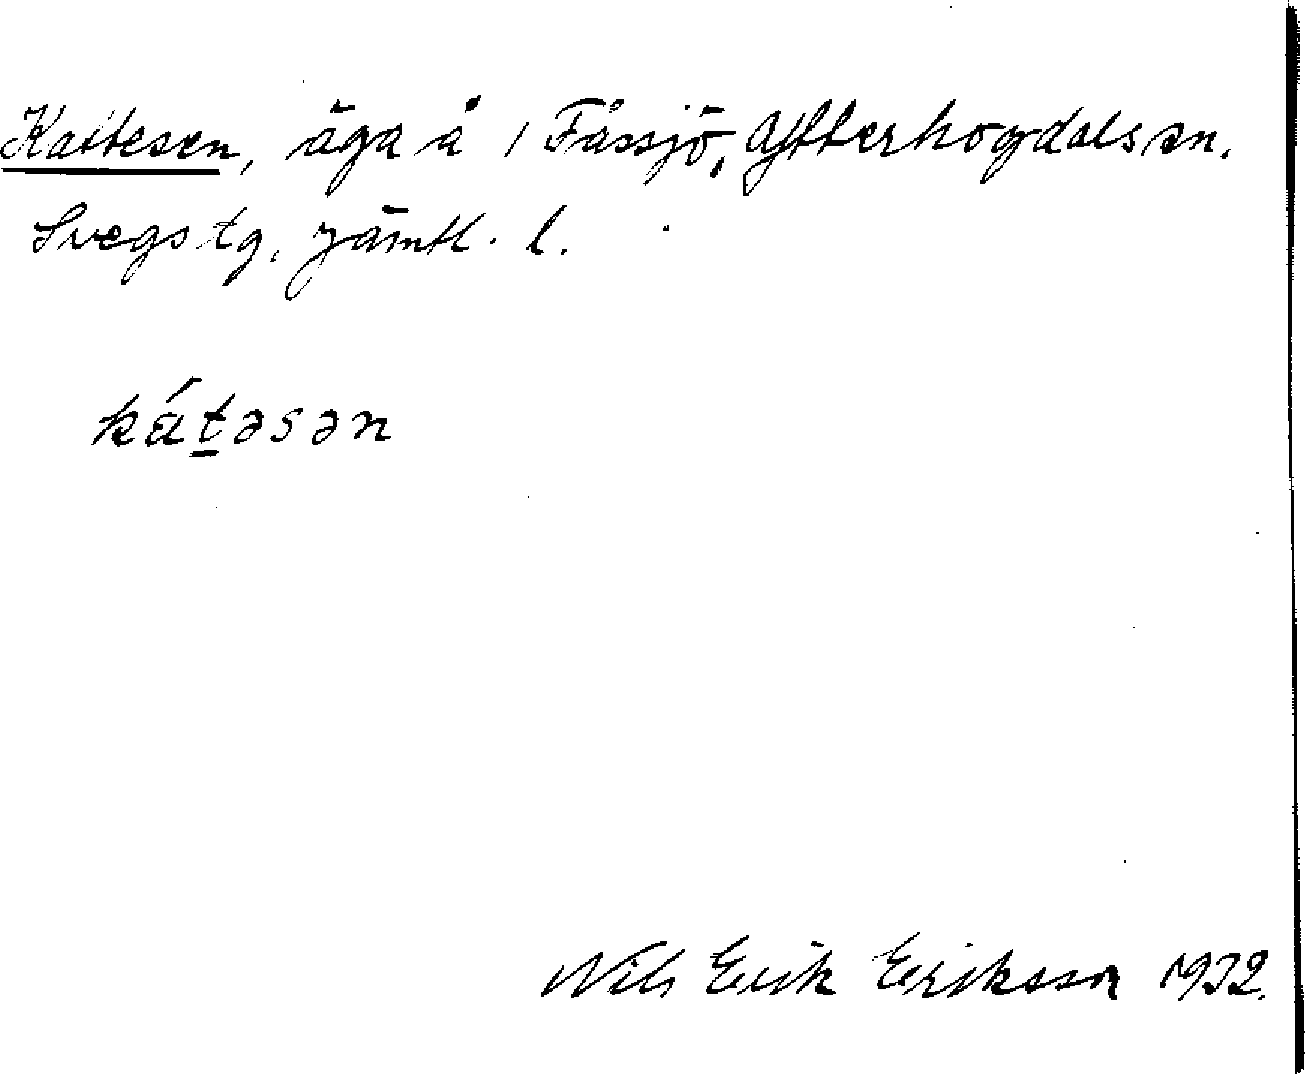 Kattesen, äga å i Fåssjö, Ytterhogdals sn.
Svegs tg. Jämtl. l.
kát̲əsən
Nils Erik Eriksson 1932.